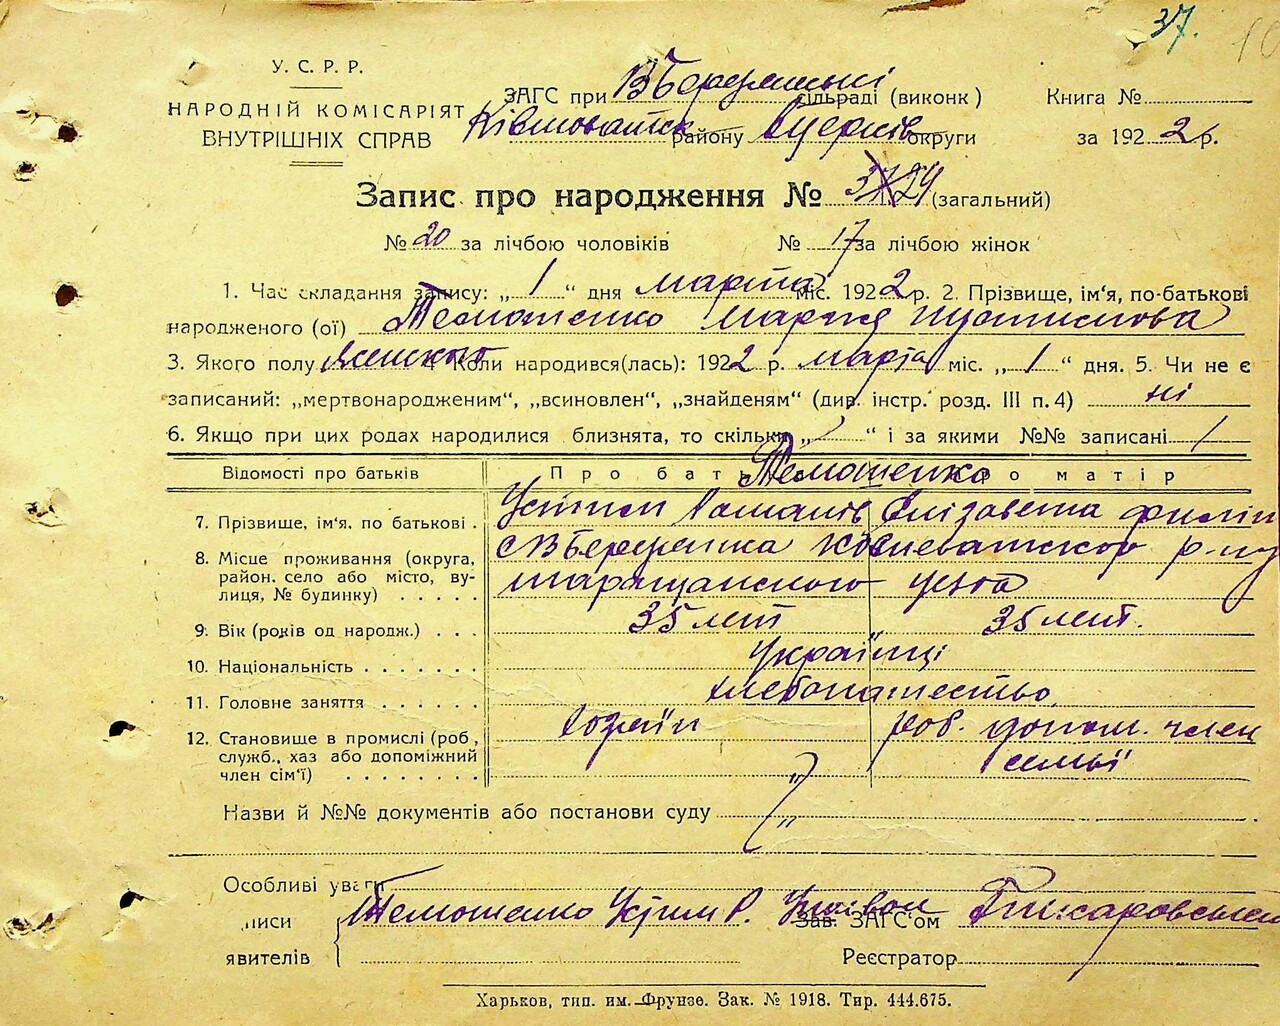 37.
У. С. Р. Р.
НАРОДНІЙ КОМІСАРІЯТ
ВНУТРІШНІХ СПРАВ
ЗАГС при В Березянські сільраді (виконк)
району округи
Книга №
за 1922 р.
Запис про народження № 37 29 (загальний)
№ 20 за лічбою чоловіків № 17 за лічбою жінок
1. Час складання запису: „ 1 “ дня марта міс. 1922 р. 2. Прізвище, ім'я, по-батькові
народженого (ої) Темошенко Мария
3. Якого полу женского 4. Коли народився(лась): 1922 р. марта міс. „ 1 “ дня. 5. Чи не є
записаний: „мертвонародженим“, „всиновлен“, „знайденям“ (див. інстр. розд. III п. 4) ні
6. Якщо при цих родах народилися близнята, то скільки „ / “ і за якими №№ записані /
Відомості про батьків Про бать Темошенко ро матір
7. Прізвище, ім'я, по батькові . Устим Романів Єлізавета Филіп
8. Місце проживання (округа, с В Березянка р-ну
район, село або місто, ву- таращанского уезда
лиця, № будинку) . . . . .
9. Вік (років од народж.) . . . 35 лет 35 лет.
10. Національність . . . . . . . Українці
11. Головне заняття . . . . . . хлебопашество
12. Становище в промислі (роб., хозяїн роб. допом. член
служб., хаз або допоміжний семьї
член сім'ї) . . . . . . . . „
Назви й №№ документів або постанови суду „
Особливі уваги
писи Темошенко Устим Р. Зав. ЗАГС'ом
явителів Реєстратор
Харьков, тип. им. Фрунзе. Зак. № 1918. Тир. 444.675.